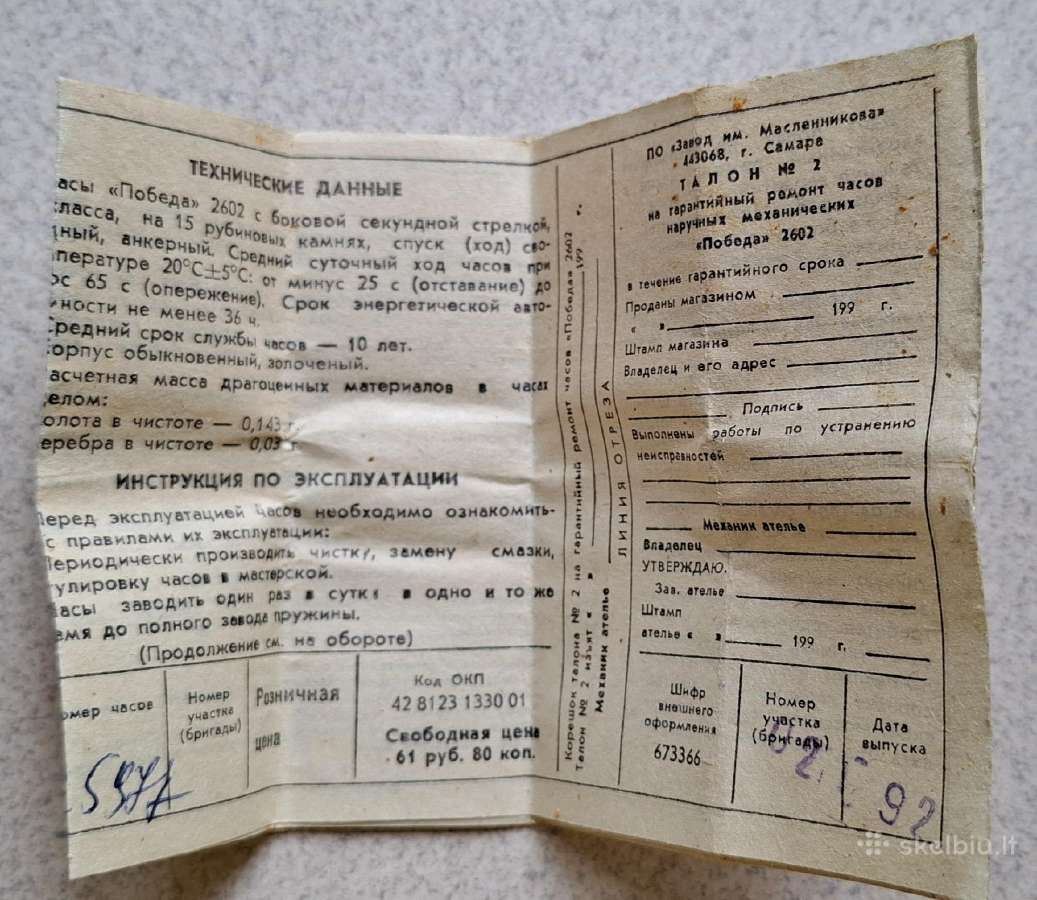 ТЕХНИЧЕСКИЕ ДАННЫЕ
асы «Победа» 2602 с боковой секундной стрелкой,
класса, на 15 рубиновых камнях, спуск (ход) сво-
дный, анкерный. Средний суточный ход часов при
мпературе 20°С±5°С: от минус 25 с (отставание) до
юс 65 с (опережение). Срок энергетической авто-
мности не менее 36 ч.
Средний срок службы часов — 10 лет.
Корпус обыкновенный, золоченый.
асчетная масса драгоценных материалов в часах
целом:
олота в чистоте — 0,143 г.
еребра в чистоте — 0,03 г.
ИНСТРУКЦИЯ ПО ЭКСПЛУАТАЦИИ
Перед эксплуатацией часов необходимо ознакомить-
с правилами их эксплуатации:
Периодически производить чистку, замену смазки,
гулировку часов в мастерской.
Часы заводить один раз в сутки в одно и то же
емя до полного завода пружины.
(Продолжение см. на обороте)
омер часов
Номер
участка
(бригады)
Розничная
цена
Код ОКП
42 8123 1330 01
Свободная цена
61 руб. 80 коп.
Корешок талона № 2 на гарантийный ремонт часов «Победа» 2602
Талон № 2 изъят « » 199 г.
Механик ателье
ЛИНИЯ ОТРЕЗА
ПО «Завод им. Масленникова»
443068, г. Самара
ТАЛОН № 2
на гарантийный ремонт часов
наручных механических
«Победа» 2602
в течение гарантийного срока
Проданы магазином
« » 199 г.
Штамп магазина
Владелец и его адрес
Подпись
Выполнены работы по устранению
неисправностей
Механик ателье
Владелец
УТВЕРЖДАЮ.
Зав. ателье
Штамп
ателье « » 199 г.
Шифр
внешнего
оформления
673366
Номер
участка
(бригады)
02
Дата
выпуска
92
skelbiu.lt